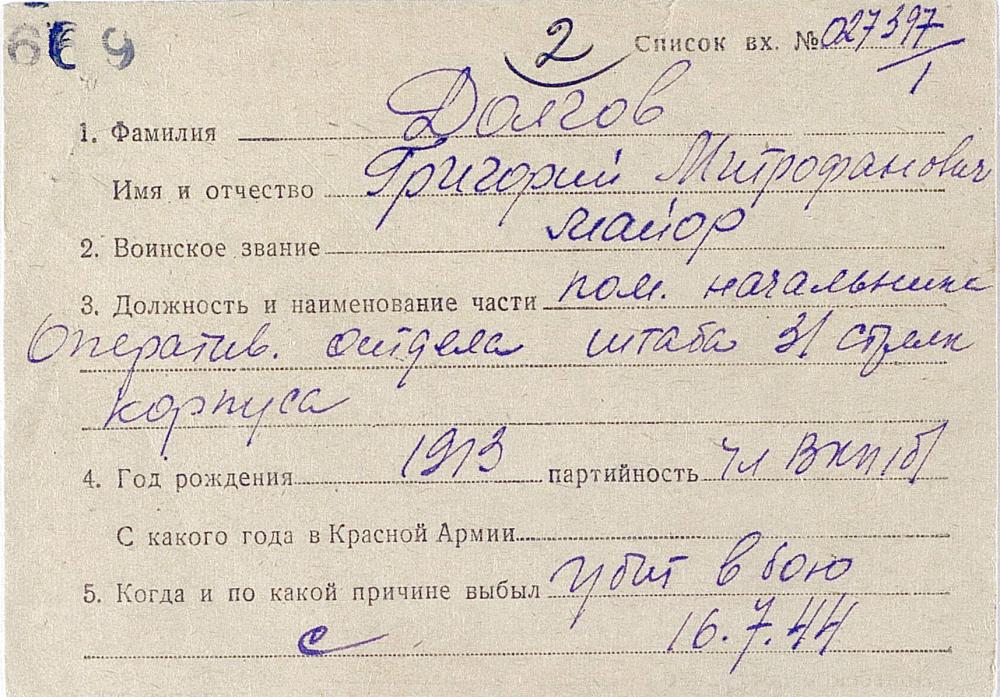 669
2 Список вх. № 027397/1
1. Фамилия Долгов
Имя и отчество Григорий Митрофанович
2. Воинское звание майор
3. Должность и наименование части пом. начальника
Оператив. отдела штаба 31 стрелк
корпуса
4. Год рождения 1913 партийность чл ВКП/б/
С какого года в Красной Армии
5. Когда и по какой причине выбыл убит в бою
с 16.7.44